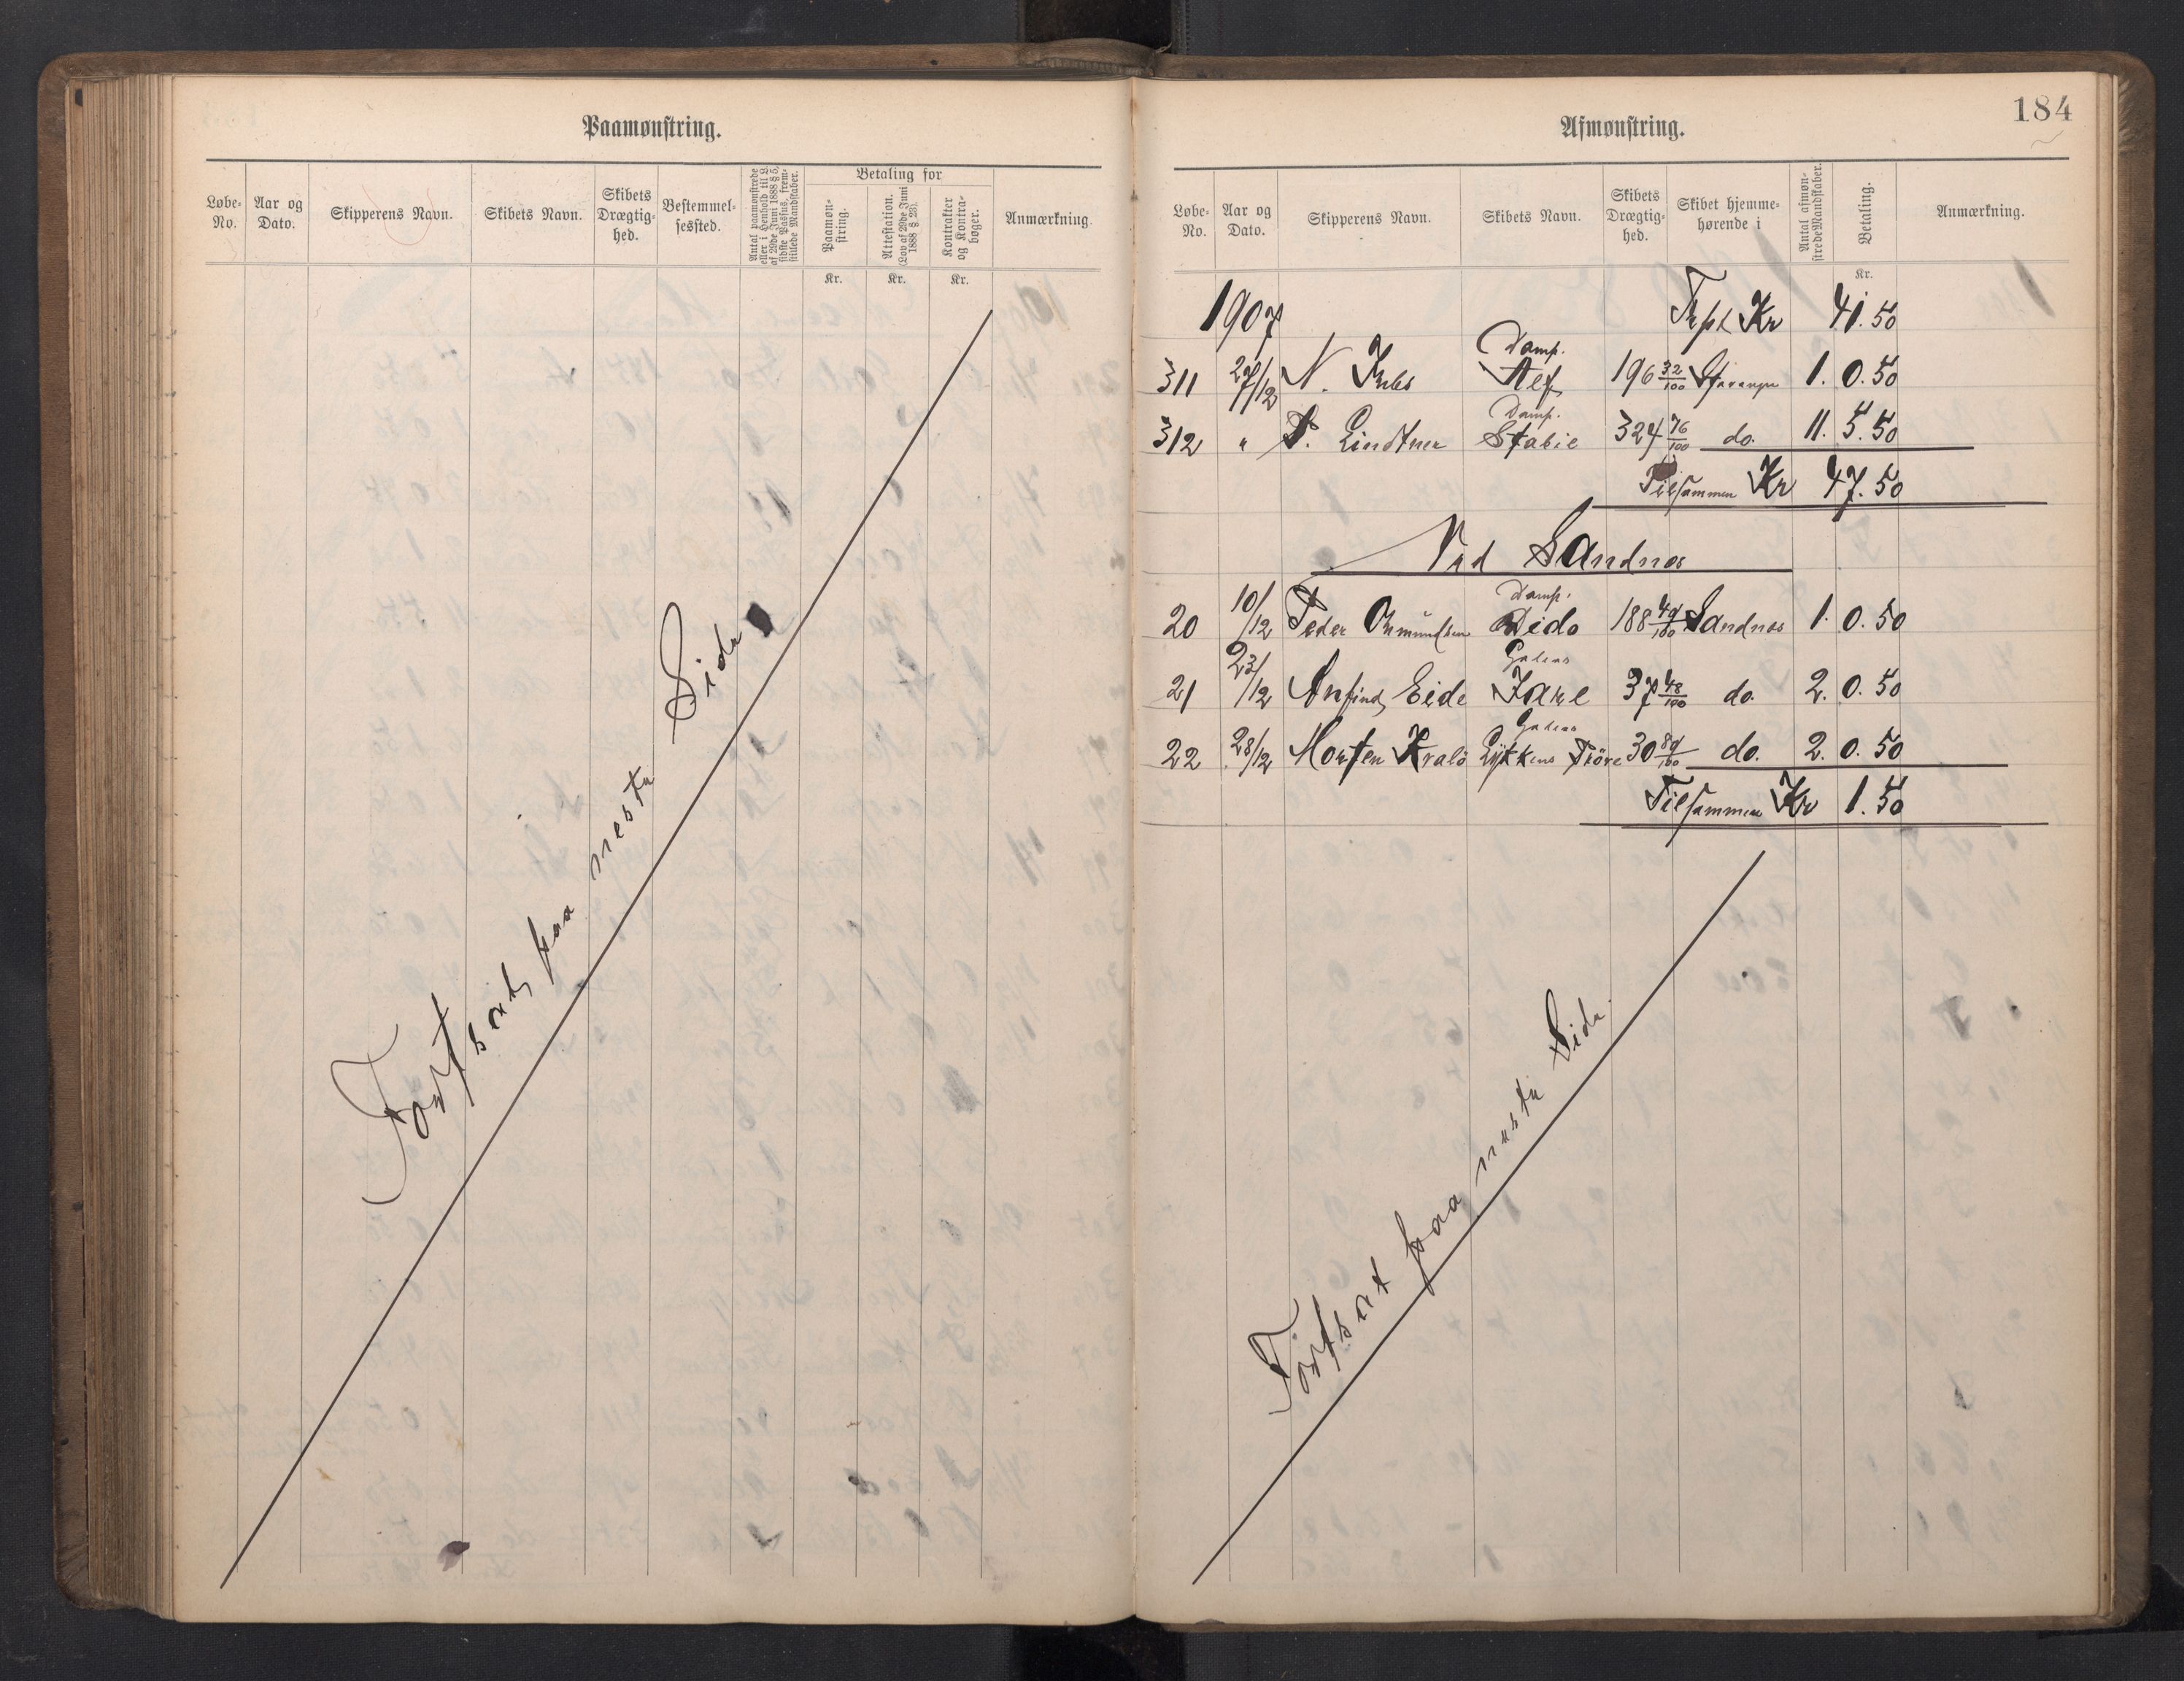 Paamønstring.
Løbe-No. Aar og Dato. Skipperens Navn. Skibets Navn. Skibets Drægtighed. Bestemmelsessted. Antal paamønstrede eller i Henhold til L. af 29de Juni 1888 § 5, sidste Passus, fremstillede Mandskaber. Betaling for Paamønstring. Attestation. (Lov af 29de Juni 1888 § 23). Kontrakter og Kontrabøger. Anmærkning.
Kr. Kr. Kr.
Fortsat paa neste Side
184
Afmønstring.
Løbe-No. Aar og Dato. Skipperens Navn. Skibets Navn. Skibets Drægtighed. Skibet hjemmehørende i Antal afmønstrede Mandskaber. Betaling. Anmærkning.
Kr.
1907 Trpt Kr 41.50
Damp.
311 27/12 N. Alf 196 32/100 Stavanger 1. 0.50
Damp.
312 " Lindtner Stabil 324 76/100 do. 11. 5.50
Tilsammen Kr 47.50
Ved Sandnes
Damp.
20 10/12 Peder Dido 188 49/100 Sandnes 1. 0.50
Galeas
21 23/12 Anfind Eide Jarl 37 48/100 do. 2. 0.50
Galeas
22 28/12 Morten Lykkens 30 89/100 do. 2. 0.50
Tilsammen Kr 1.50
Fortsat paa neste Side